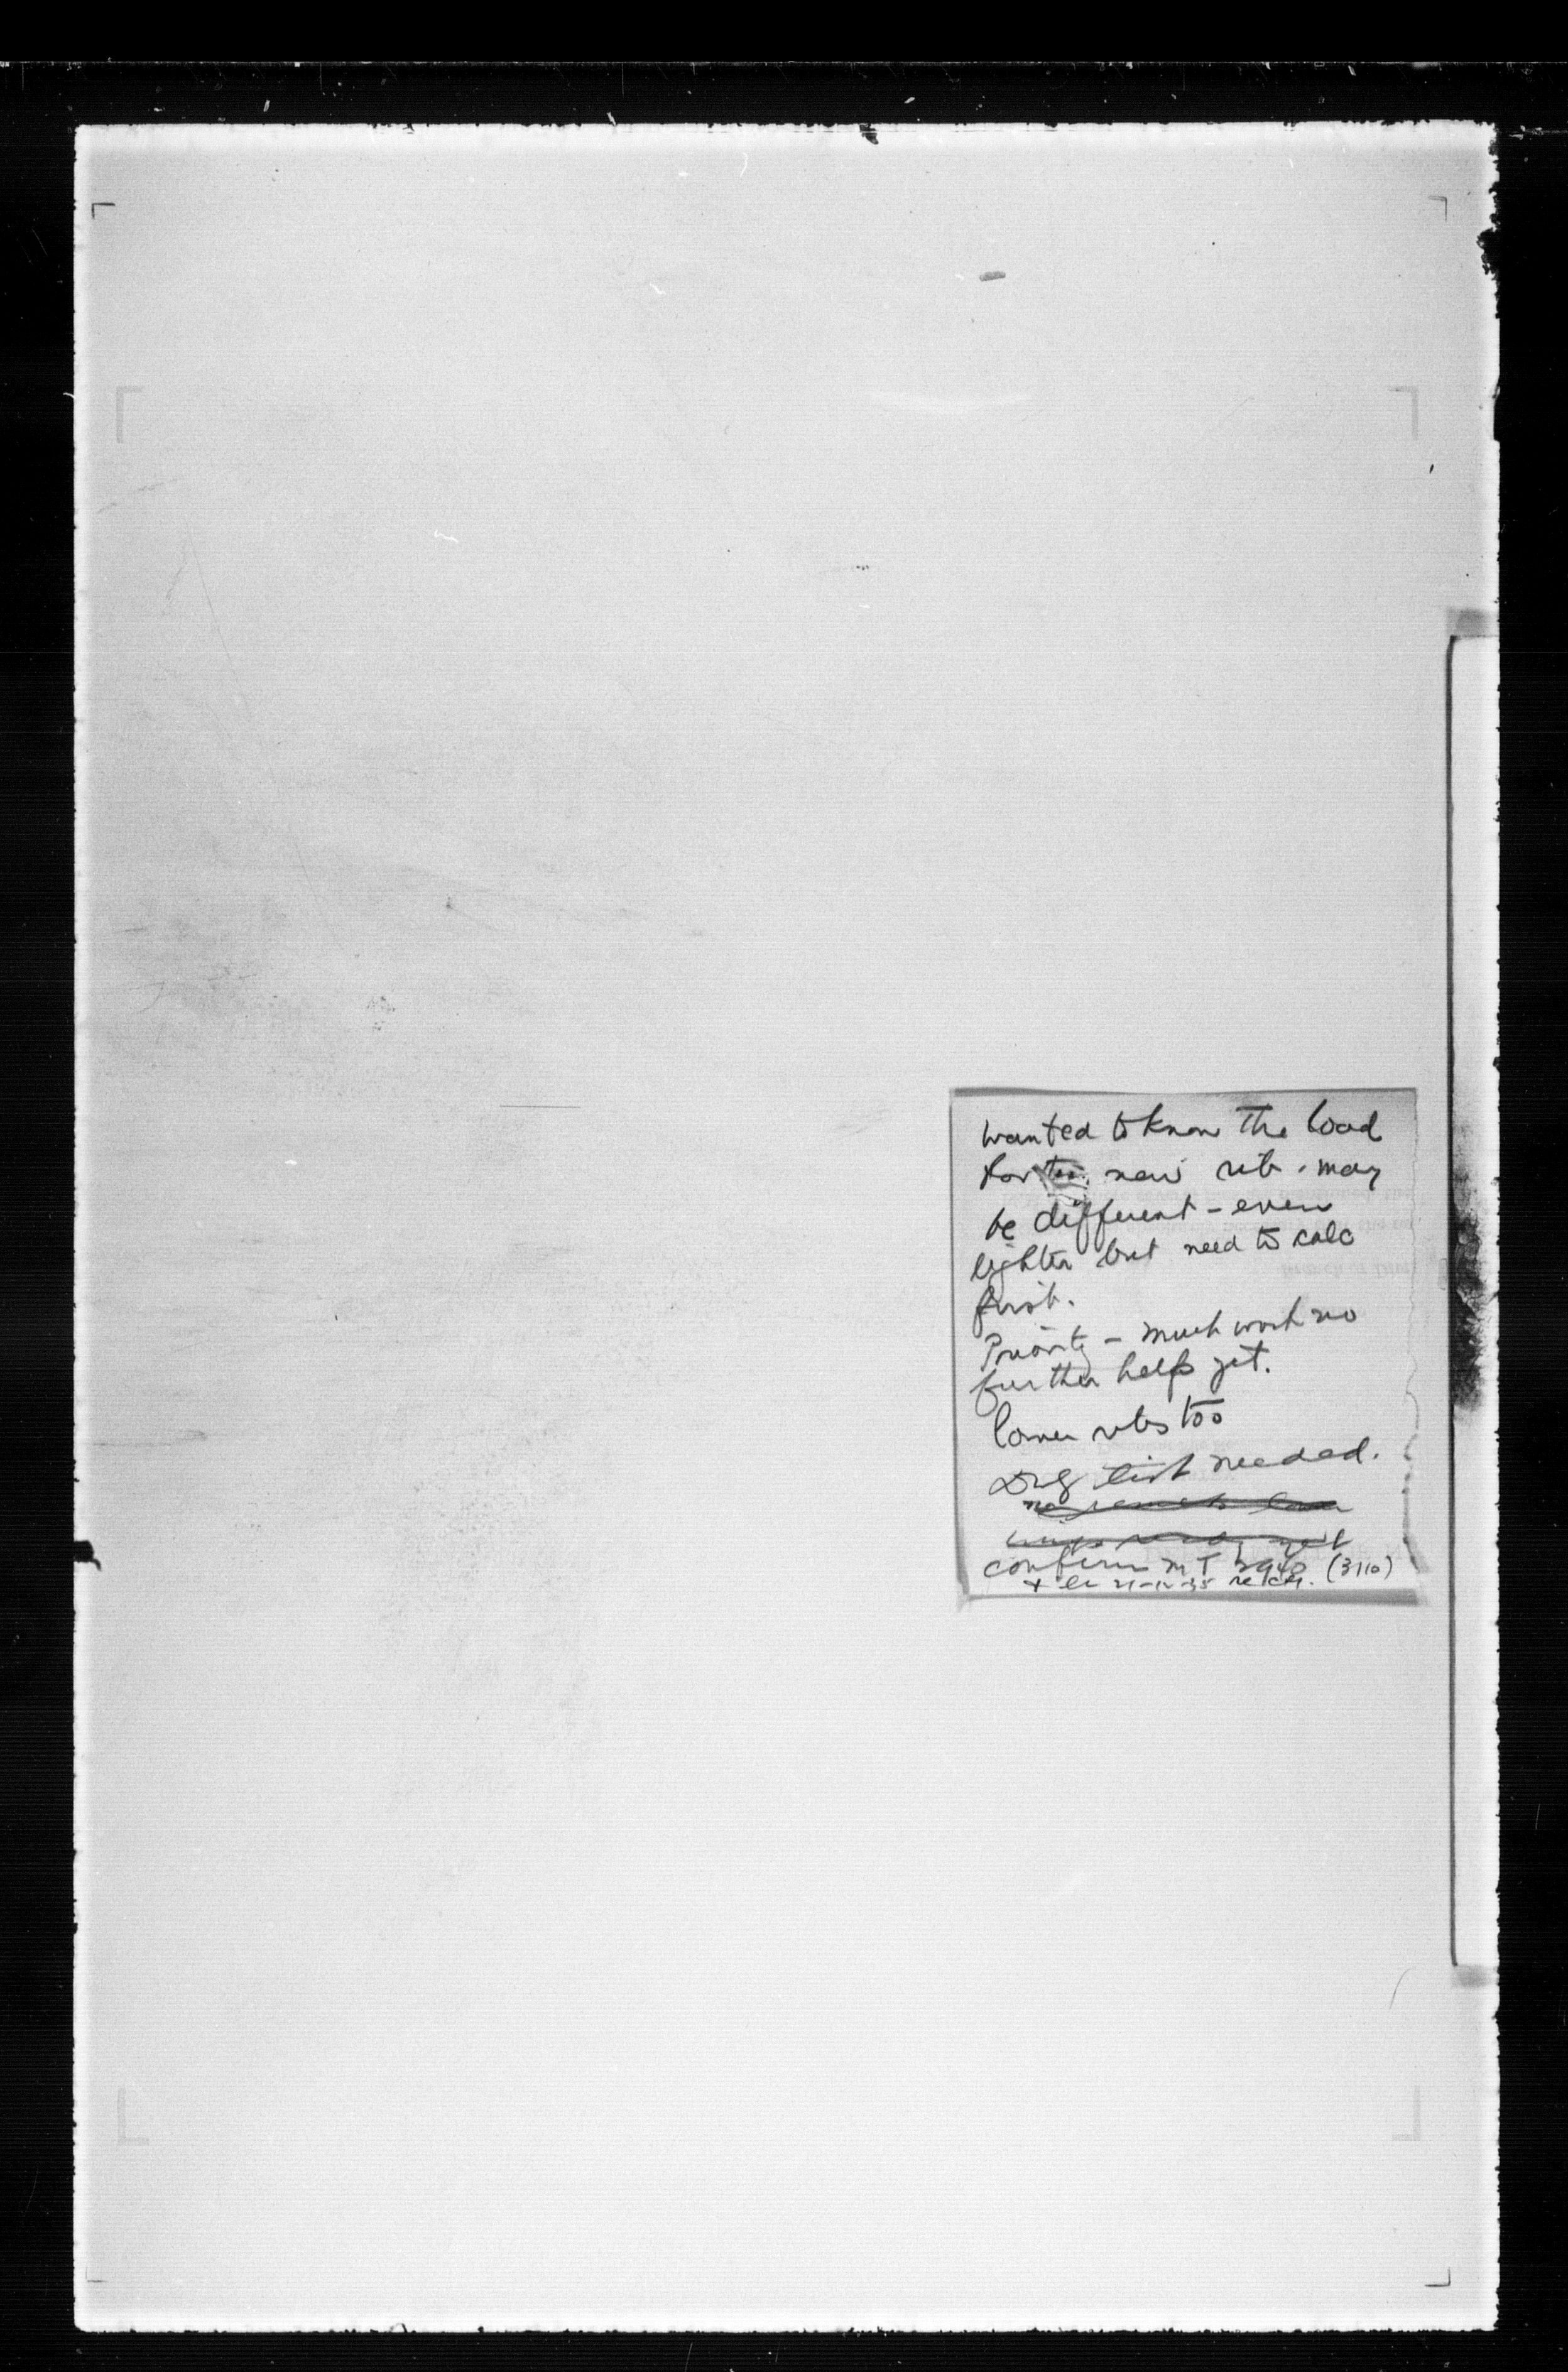 wanted to know the load
for new rib - may
be different - even
lighter but need to calc
first.
Priority - much work no
further help yet.
lower ribs too
Drg list needed.
confirm MT 2940 (3110)